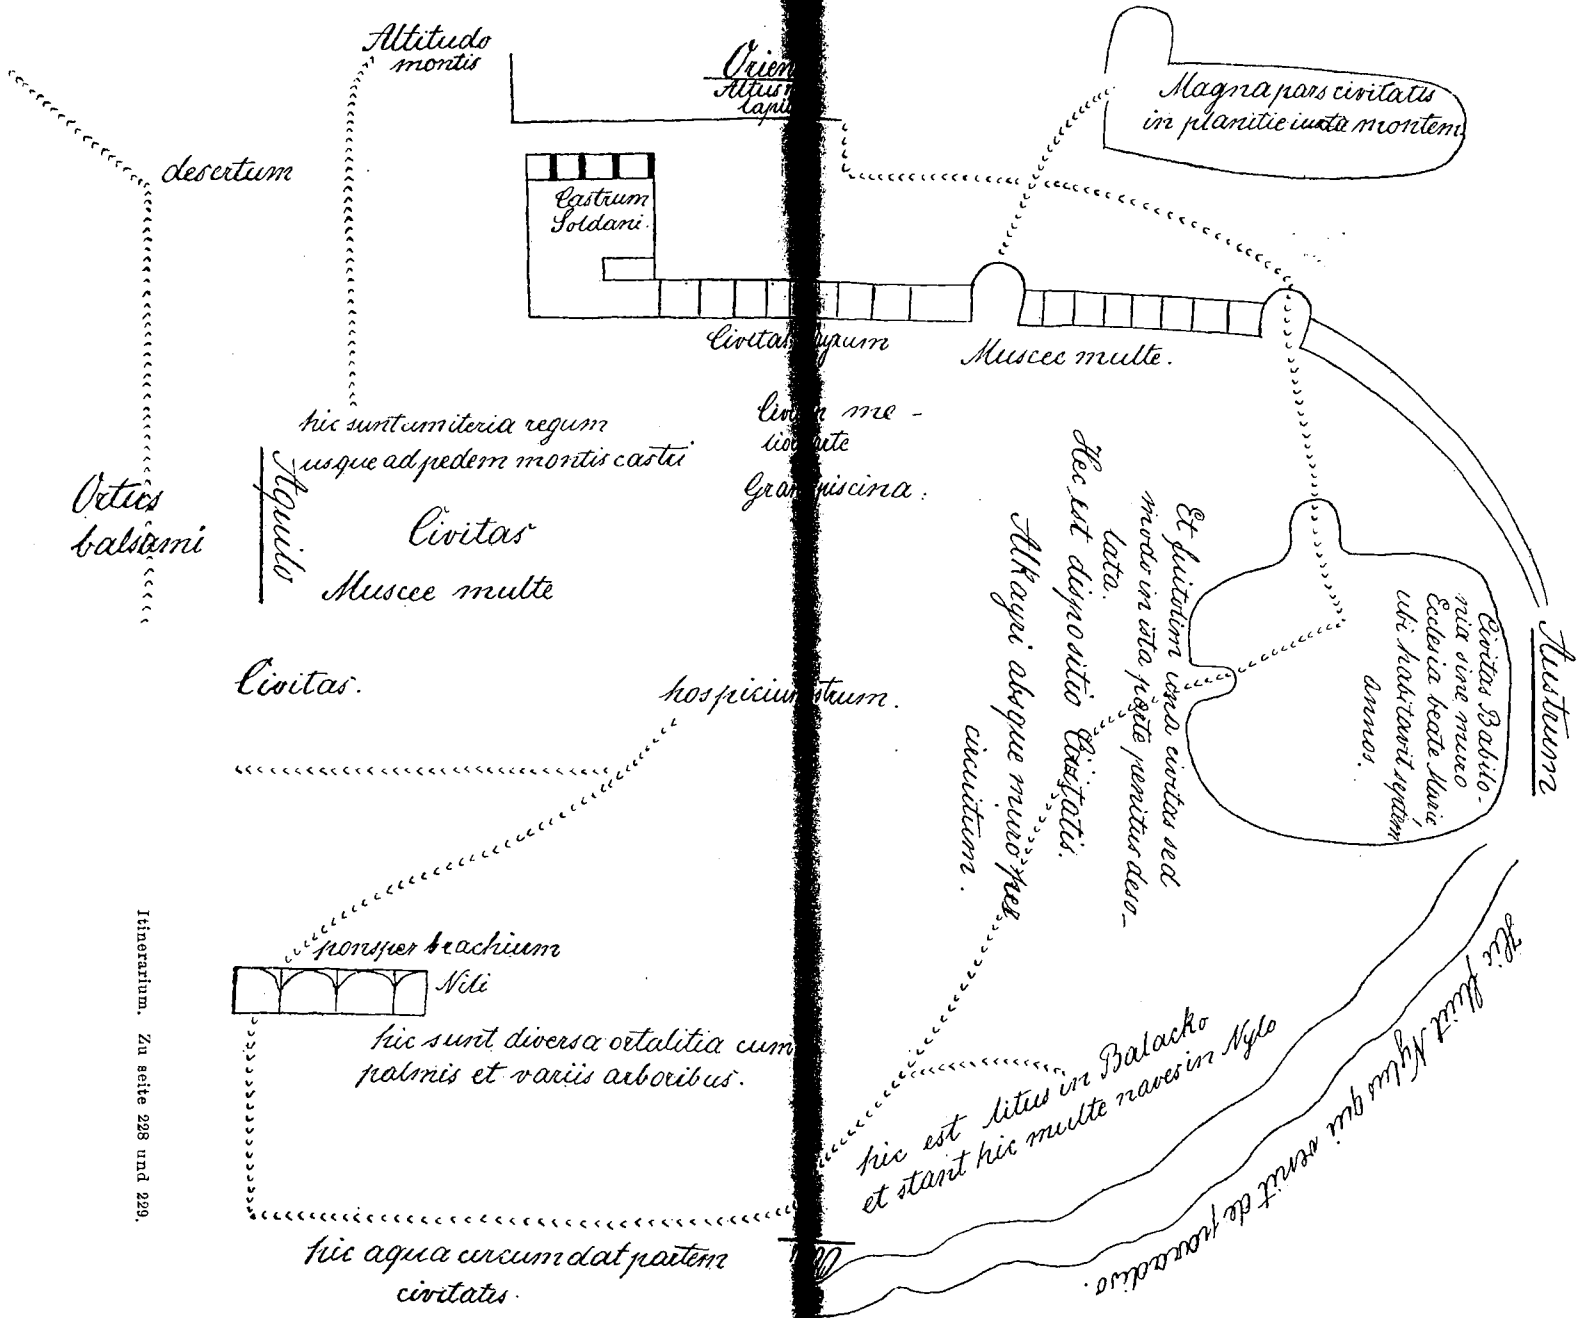 Altitudo
montis
Orien
Altus
lapi
Magna pars civitatis
in planitie iuxta montem
desertum
Castrum
Soldani.
Civitas
Muscee multe.
hic sunt cimiteria regum
usque ad pedem montis castri
me-
Gran piscina:
Ortus
balsami
Aquilo
Civitas
Muscee multe
Et fuit olim una civitas sed
modo in ista parte penitus deso-
lata.
Hec est dispositio Civitatis.
Alkayri absque muro per
circuitum.
Civitas Babilo-
nia sine muro
Ecclesia beate Marie
ubi habitavit septem
annos.
Austrum
Civitas.
hospicium strum.
pons per brachium
Nili
hic sunt diversa ortalitia cum
palmis et variis arboribus.
hic est litus in Balacko
et stant hic multe naves in Nylo
Hic fluit Nylus qui venit de paradiso.
hic aqua circumdat partem
civitatis.
Itinerarium. Zu seite 228 und 229.